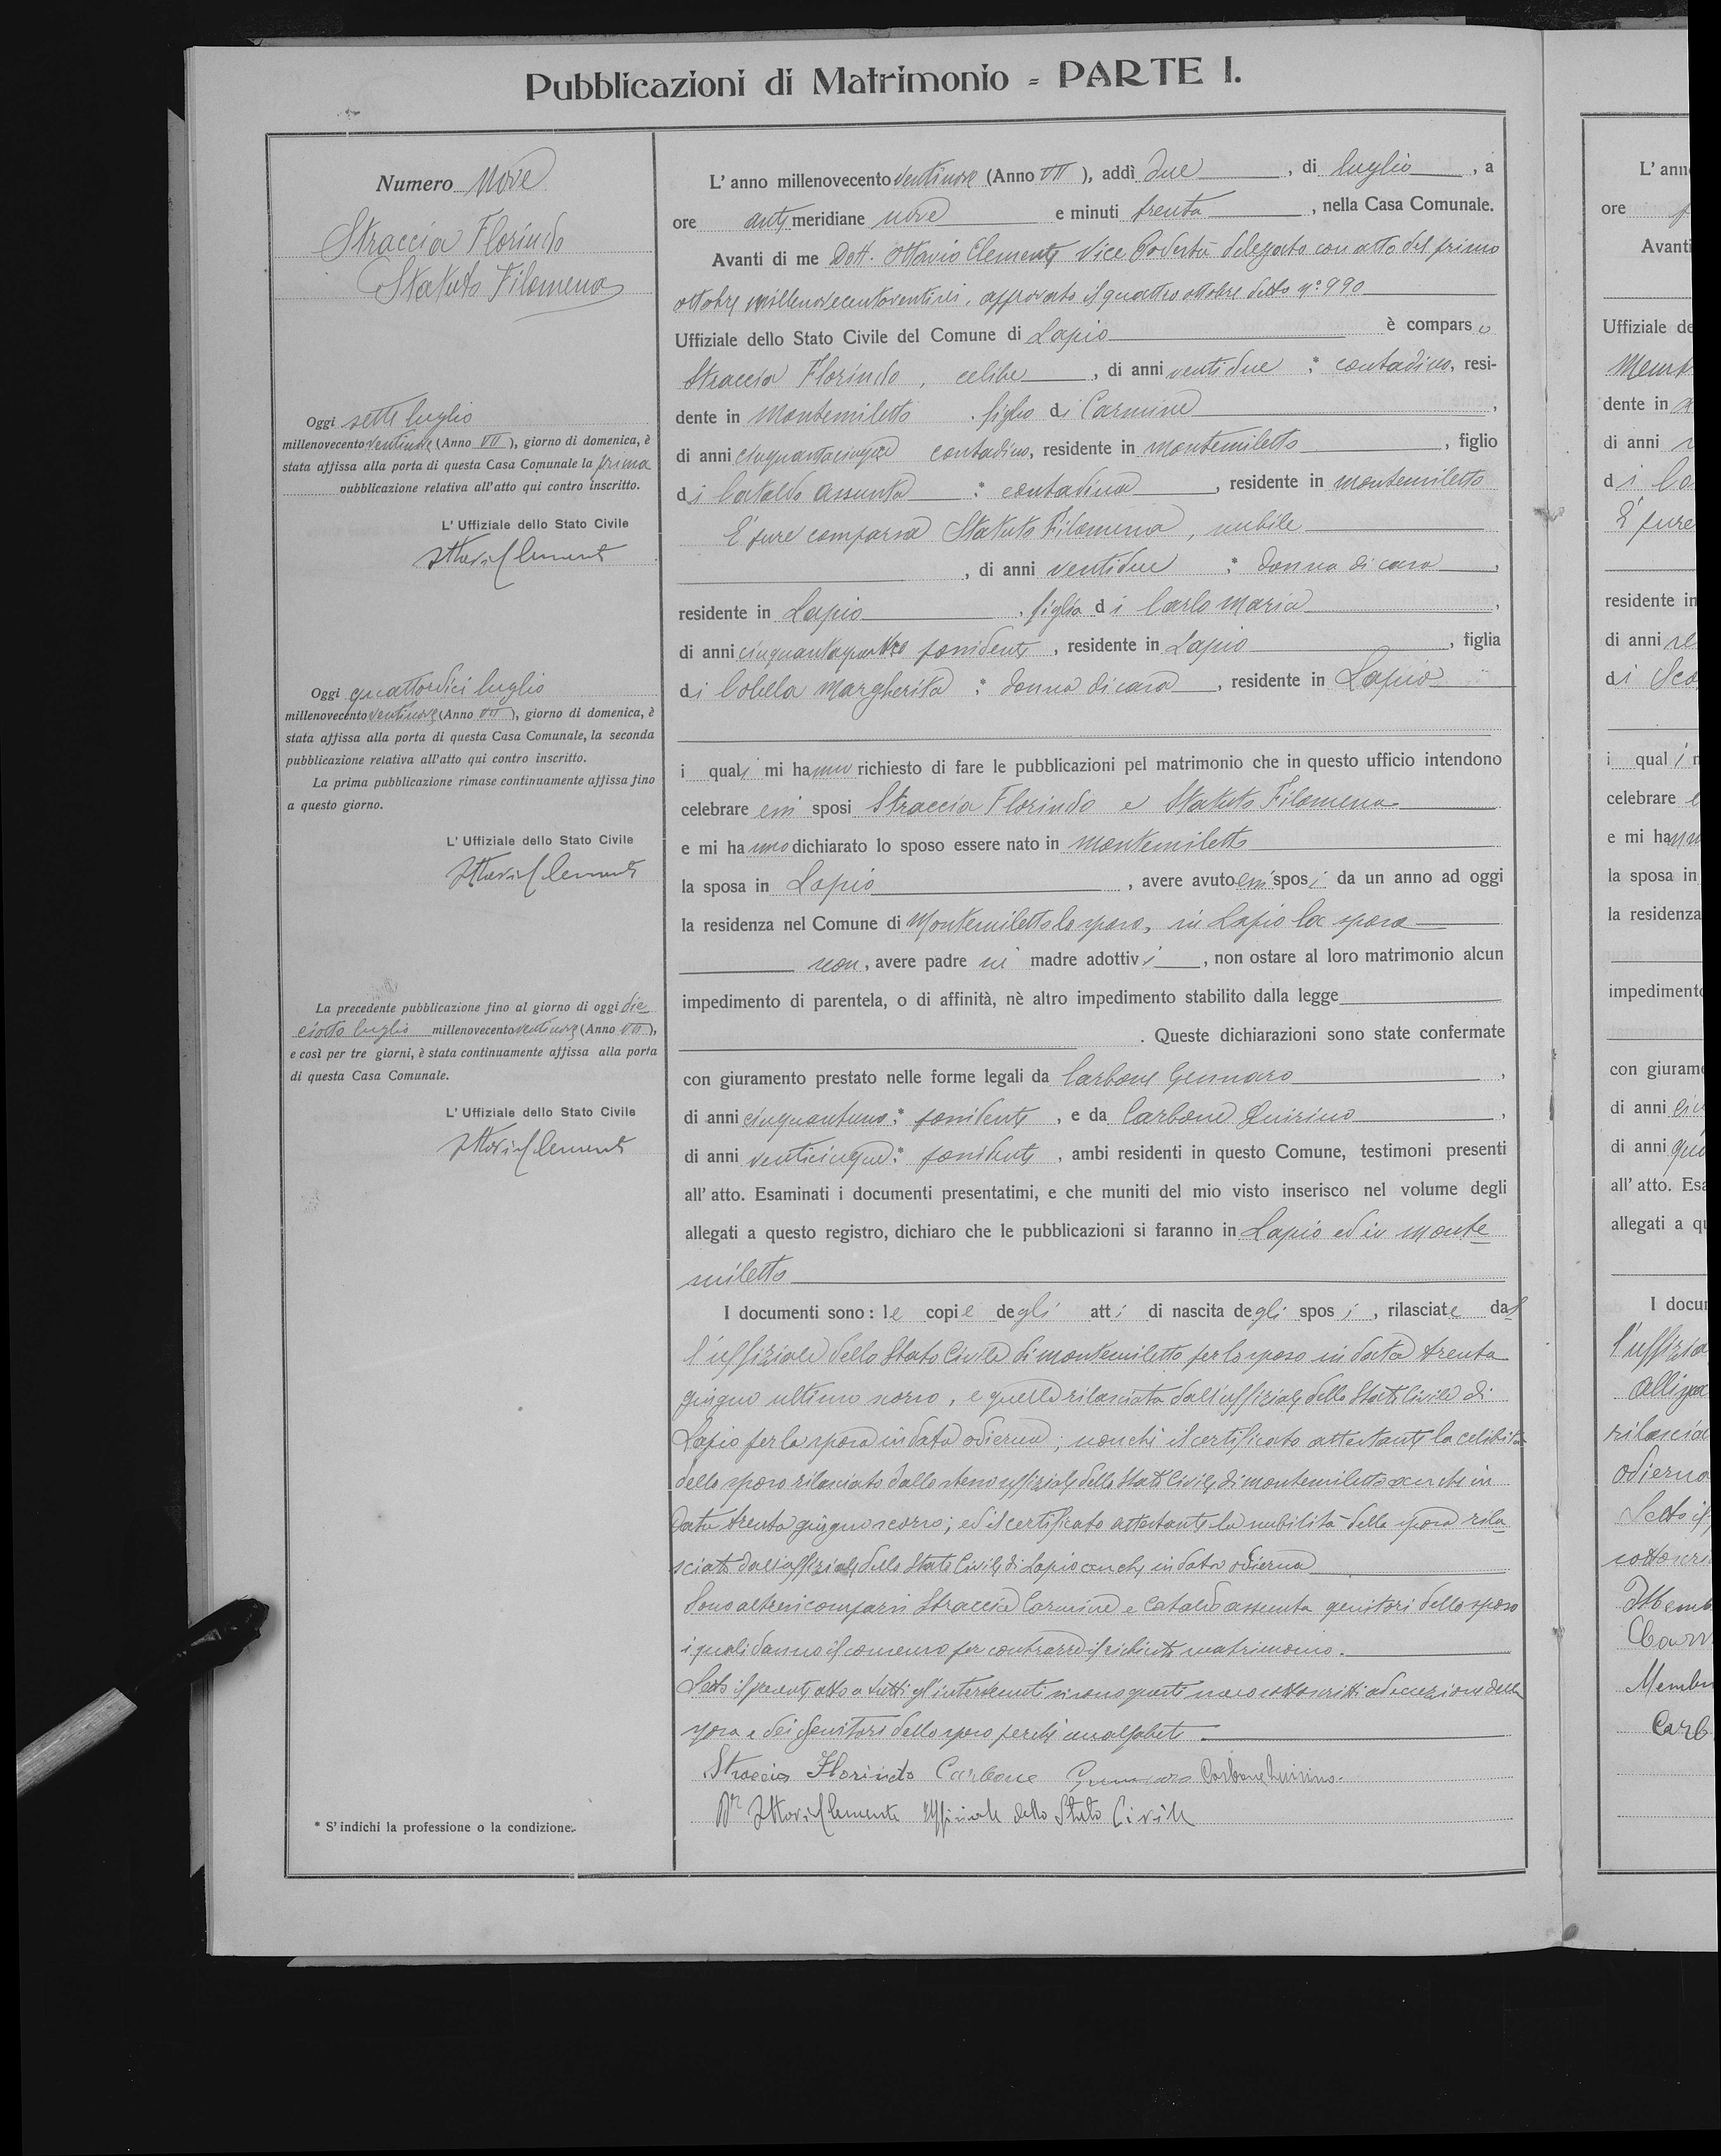 Pubblicazioni di Matrimonio - PARTE I.
Numero Nove
Straccia Florindo
Statuto Filomena
Oggi sette luglio
millenovecento ventinove (Anno VII), giorno di domenica, è
stata affissa alla porta di questa Casa Comunale la prima
pubblicazione relativa all'atto qui contro inscritto.
L'Uffiziale dello Stato Civile
Oggi quattordici luglio
millenovecento ventinove (Anno VII), giorno di domenica, è
stata affissa alla porta di questa Casa Comunale, la seconda
pubblicazione relativa all'atto qui contro inscritto.
La prima pubblicazione rimase continuamente affissa fino
a questo giorno.
L'Uffiziale dello Stato Civile
La precedente pubblicazione fino al giorno di oggi die=
ciotto luglio millenovecento ventinove (Anno VII),
e così per tre giorni, è stata continuamente affissa alla porta
di questa Casa Comunale.
L'Uffiziale dello Stato Civile
* S'indichi la professione o la condizione.
L'anno millenovecento ventinove (Anno VII), addì due, di luglio, a
ore anti meridiane nove e minuti trenta, nella Casa Comunale.
Avanti di me Dott. Ottavio Clemente Vice Podestà delegato con atto del primo
ottobre millenovecentoventisei, approvato il quattro ottobre detto n.° 990
Uffiziale dello Stato Civile del Comune di Lapio è comparso
Straccia Florindo, celibe, di anni ventidue * contadino, resi-
dente in Montemiletto, figlio di Carmine,
di anni cinquantacinque contadino, residente in Montemiletto, figlio
di Cataldo Assunta * contadina, residente in Montemiletto
E' pure comparsa Statuto Filomena, nubile
, di anni ventidue * donna di casa,
residente in Lapio, figlia di Carlo Maria,
di anni cinquantaquattro possidente, residente in Lapio, figlia
di Cobella Margherita * donna di casa, residente in Lapio
i quali mi hanno richiesto di fare le pubblicazioni pel matrimonio che in questo ufficio intendono
celebrare essi sposi Straccia Florindo e Statuto Filomena
e mi hanno dichiarato lo sposo essere nato in Montemiletto
la sposa in Lapio, avere avuto essi sposi da un anno ad oggi
la residenza nel Comune di Montemiletto lo sposo, in Lapio la sposa
non, avere padre nè madre adottivi, non ostare al loro matrimonio alcun
impedimento di parentela, o di affinità, nè altro impedimento stabilito dalla legge
. Queste dichiarazioni sono state confermate
con giuramento prestato nelle forme legali da Carbone Gennaro,
di anni cinquantuno * possidente, e da Carbone Quirino,
di anni venticinque * possidente, ambi residenti in questo Comune, testimoni presenti
all'atto. Esaminati i documenti presentatimi, e che muniti del mio visto inserisco nel volume degli
allegati a questo registro, dichiaro che le pubblicazioni si faranno in Lapio ed in Monte=
miletto
I documenti sono: le copie degli atti di nascita degli sposi, rilasciate dal
l'uffiziale dello Stato Civile di Montemiletto per lo sposo in data trenta
giugno ultimo scorso, e quella rilasciata dall'uffiziale dello Stato Civile di
Lapio per la sposa in data odierna; nonchè il certificato attestante la celibità
dello sposo rilasciato dallo stesso uffiziale dello Stato Civile di Montemiletto anche in
data trenta giugno scorso; ed il certificato attestante la nubilità della sposa rila=
sciato dall'uffiziale dello Stato Civile di Lapio anche in data odierna
Sono altresì comparsi Straccia Carmine e Cataldo Assunta genitori dello sposo
i quali danno il consenso per contrarre il richiesto matrimonio.
Letto il presente atto a tutti gl'intervenuti si sono questi meco sottoscritti ad eccezione della
sposa e dei genitori dello sposo perchè analfabeti
Straccia Florindo Carbone Gennaro Carbone Quirino
Dr Ottavio Clemente Uffiziale dello Stato Civile
L'ann
ore
Avanti
Uffiziale de
dente in
di anni
di
E' pure
residente in
di anni
di
i quali
celebrare
e mi hann
la sposa in
la residenza
impedimento
con giurame
di anni
di anni
all'atto. Esa
allegati a qu
I docum
l'uffizia
odierna
Carb